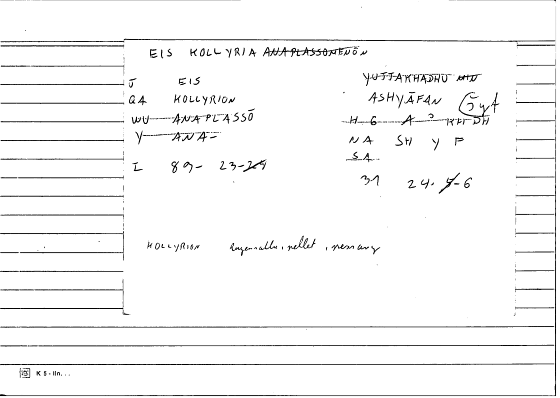 EIS KOLLYRIA ANAPLASSOMENŌN
YUTTAKHADHU MIN
U EIS
ASHYĀFAN
QA KOLLYRION
WU ANAPLASSŌ
H G A ? KH DH
Y ANA-
NA SH Y F
SA
I 89- 23-24
31 24. 5-6
KOLLYRION Augensalbe, pellet, pessary
K 5 - lln...